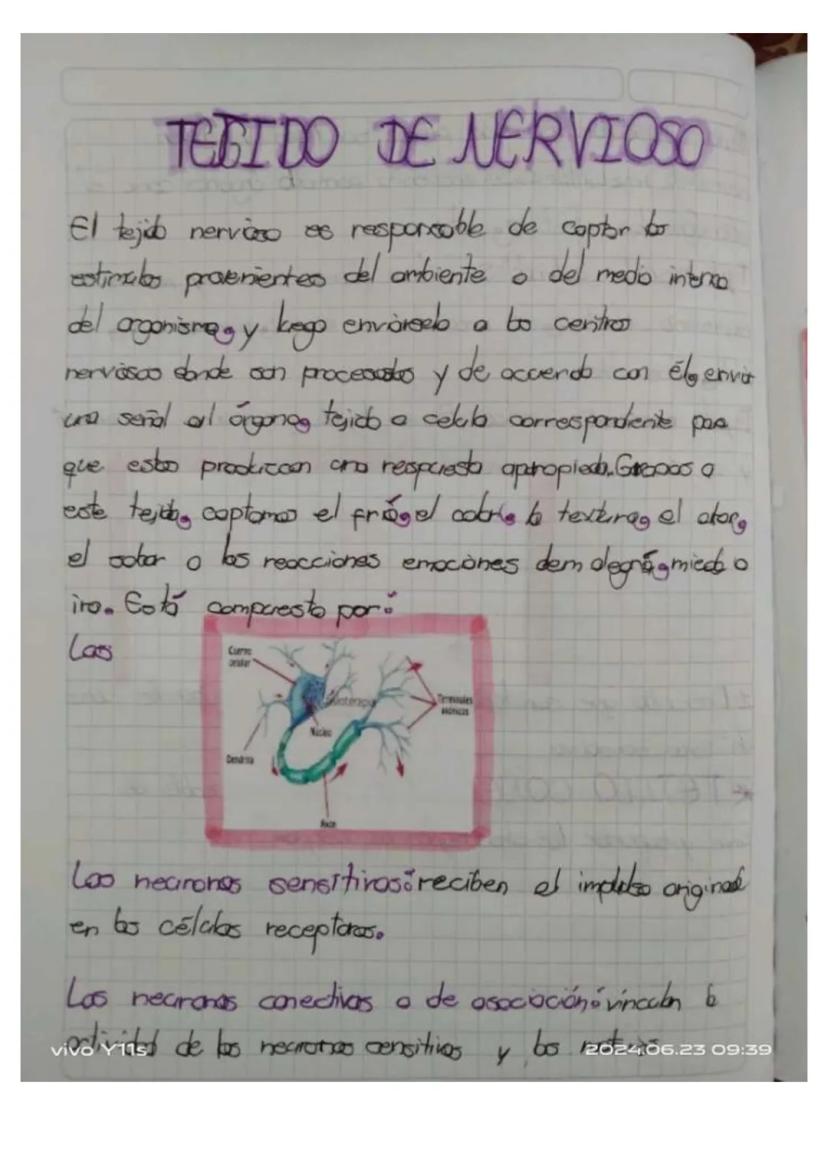 TEGIDO DE NERVIOSO
El tejido nervioso es responsable de captar los
estimulos provenientes del ambiente o del medio interno
del organismo, y luego enviárselo a los centros
nerviosos donde son procesados y de acuerdo con él, envia
una señal al órgano, tejido o celula correspondiente para
que estos produzcan una respuesta apropiada. Gracias a
este tejido, captamos el frío, el calor, la textura, el olor,
el sabor o las reacciones emociones dem alegría, miedo o
ira. Está compuesto por:
Las
Cuerpo
celular
Núcleo
Terminales
axónicos
Dendrita
Axon
Las neuronas sensitivas: reciben el impulso original
en las células receptoras.
Las neuronas conectivas o de asociación: vinculan la
actividad de las neuronas sensitivas y las
vivo Y11s
2024.06.23 09:39